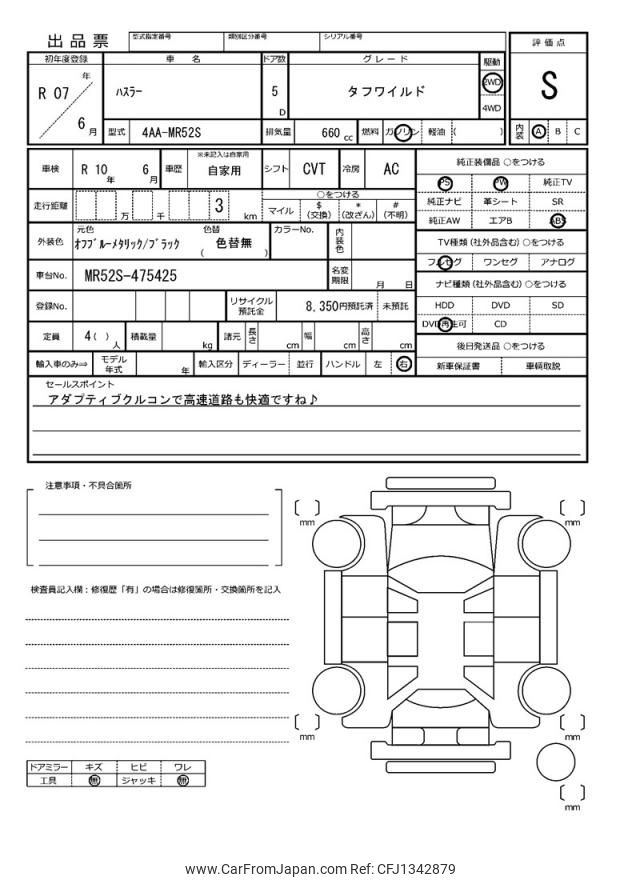 出品票
型式指定番号 類別区分番号 シリアル番号
評価点
S
内装 A B C
初年度登録 車名 ドア数 グレード 駆動
R 07 年 6 月
ハスラー
5 D
タフワイルド
2WD
4WD
型式 4AA-MR52S 排気量 660 cc 燃料 ガソリン 軽油 ( )
車検 R 10 年 6 月 車歴 ※未記入は自家用 自家用 シフト CVT 冷房 AC
走行距離 万 千 3 km
○をつける
マイル $ (交換) * (改ざん) # (不明)
外装色 元色 色替 カラーNo. 内装色
オフブルーメタリック/ブラック ( 色替無 )
車台No. MR52S-475425 名変期限 月 日
登録No. リサイクル預託金 8,350円預託済 未預託
定員 4 ( ) 人 積載量 kg 諸元 長さ cm 幅 cm 高さ cm
輸入車のみ⇒ モデル年式 年 輸入区分 ディーラー 並行 ハンドル 左 右
純正装備品 ○をつける
PS PW 純正TV
純正ナビ 革シート SR
純正AW エアB ABS
TV種類 (社外品含む) ○をつける
フルセグ ワンセグ アナログ
ナビ種類 (社外品含む) ○をつける
HDD DVD SD
DVD再生可 CD
後日発送品 ○をつける
新車保証書 車輌取説
セールスポイント
アダプティブクルコンで高速道路も快適ですね♪
注意事項・不具合箇所
検査員記入欄：修復歴「有」の場合は修復箇所・交換箇所を記入
mm
mm
mm
mm
mm
ドアミラー キズ ヒビ ワレ
工具 無 ジャッキ 無
www.CarFromJapan.com Ref: CFJ1342879